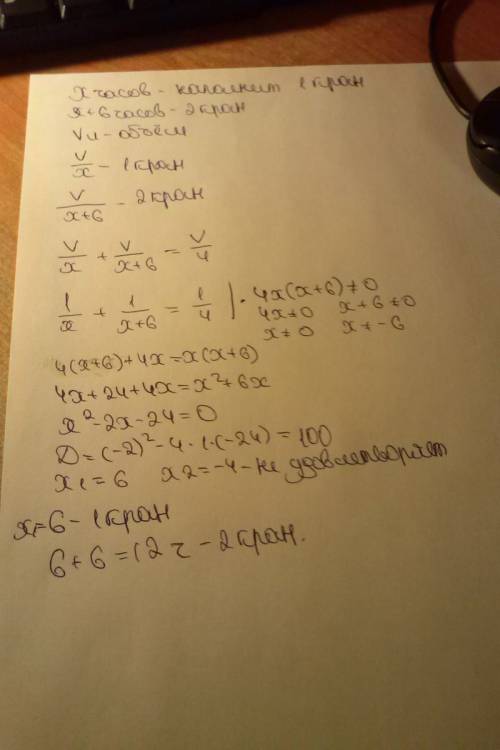 x часов - наполнит 1 кран
x+6 часов - 2 кран
V - объём
V/x - 1 кран
V/(x+6) - 2 кран
V/x + V/(x+6) = V/4
1/x + 1/(x+6) = 1/4 | · 4x(x+6) ≠ 0
4x≠0 x+6≠0
x≠0 x≠-6
4(x+6)+4x=x(x+6)
4x+24+4x=x²+6x
x²-2x-24=0
D=(-2)²-4·1·(-24)=100
x1=6 x2=-4 - не удовлетворяет
x=6 - 1 кран
6+6=12 ч - 2 кран.